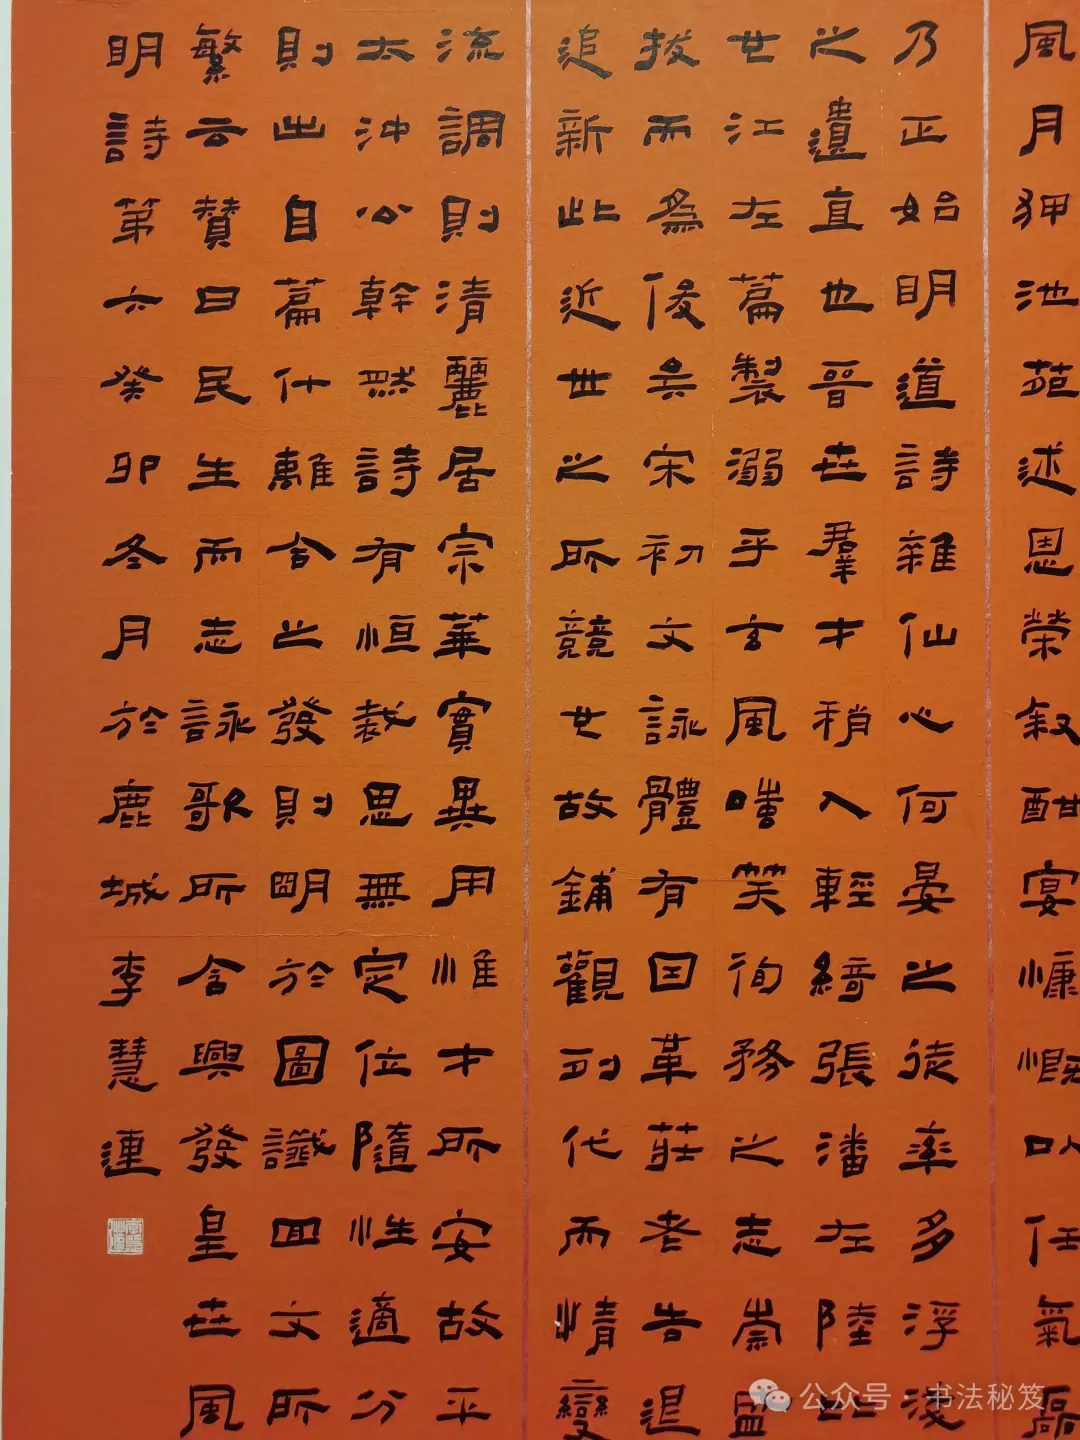 風月狎池苑述恩榮叙酣宴慷慨以任氣磊
乃正始明道詩雜仙心何晏之徒率多浮淺
之遺直也晉世羣才稍入輕綺張潘左陸比
世江左篇製溺乎玄風嗤笑徇務之志崇盛
拔而為俊矣宋初文詠體有因革莊老告退
追新此近世之所競也故鋪觀列代而情變
流調則清麗居宗華實異用惟才所安故平
太沖公幹然詩有恒裁思無定位隨性適分
則出自篇什離合之發則明於圖讖回文所
繁云贊曰民生而志詠歌所含興發皇世風
明詩第六癸卯冬月於鹿城李慧連
公众号·书法秘笈